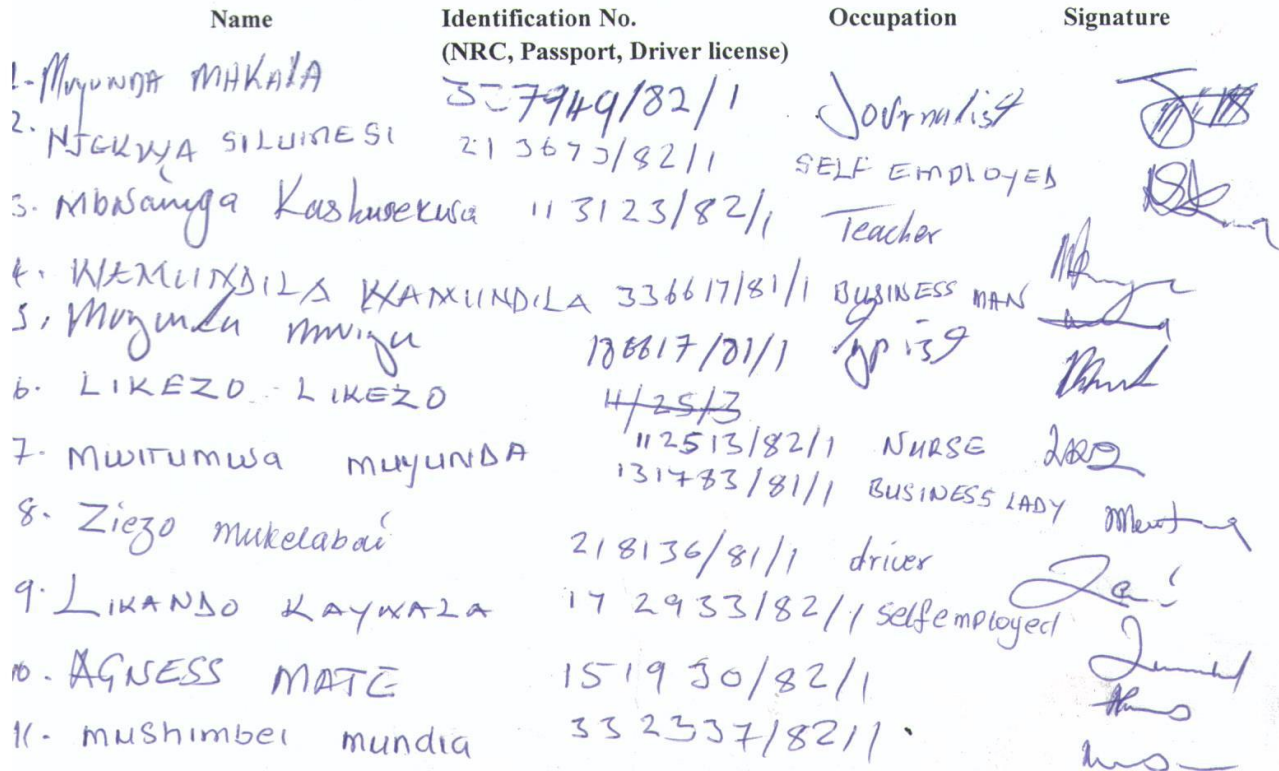 Name Identification No. Occupation Signature
(NRC, Passport, Driver license)
1- Muyunda MAKALA 337949/82/1 Journalist
2. NJEKWA SILUMESI 213673/82/1 SELF EMPLOYED
3. Kashuwekuwa 113123/82/1 Teacher
4. WAMUNDILA WAMUNDILA 336617/81/1 BUSINESS MAN
5. 186617/81/1 Typist
6. LIKEZO LIKEZO 11/25/3
112513/82/1 NURSE
7. Mwitumwa muyunda 131783/81/1 BUSINESS LADY
8. Ziezo mukelabai 218136/81/1 driver
9. LIKANDO KAYWALA 172933/82/1 selfemployed
10. AGNESS MATE 151930/82/1
11. mushimbei mundia 332337/82/1